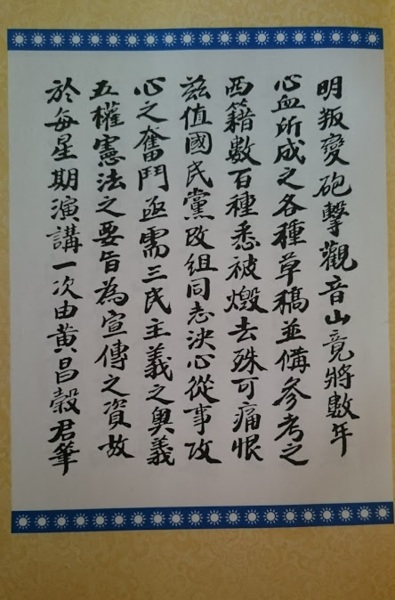 明叛變砲擊觀音山竟將數年
心血所成之各種草稿並備參考之
西籍數百種悉被燬去殊可痛恨
茲值國民黨改組同志決心從事攻
心之奮鬥亟需三民主義之奧義
五權憲法之要旨為宣傳之資故
於每星期演講一次由黃昌穀君筆